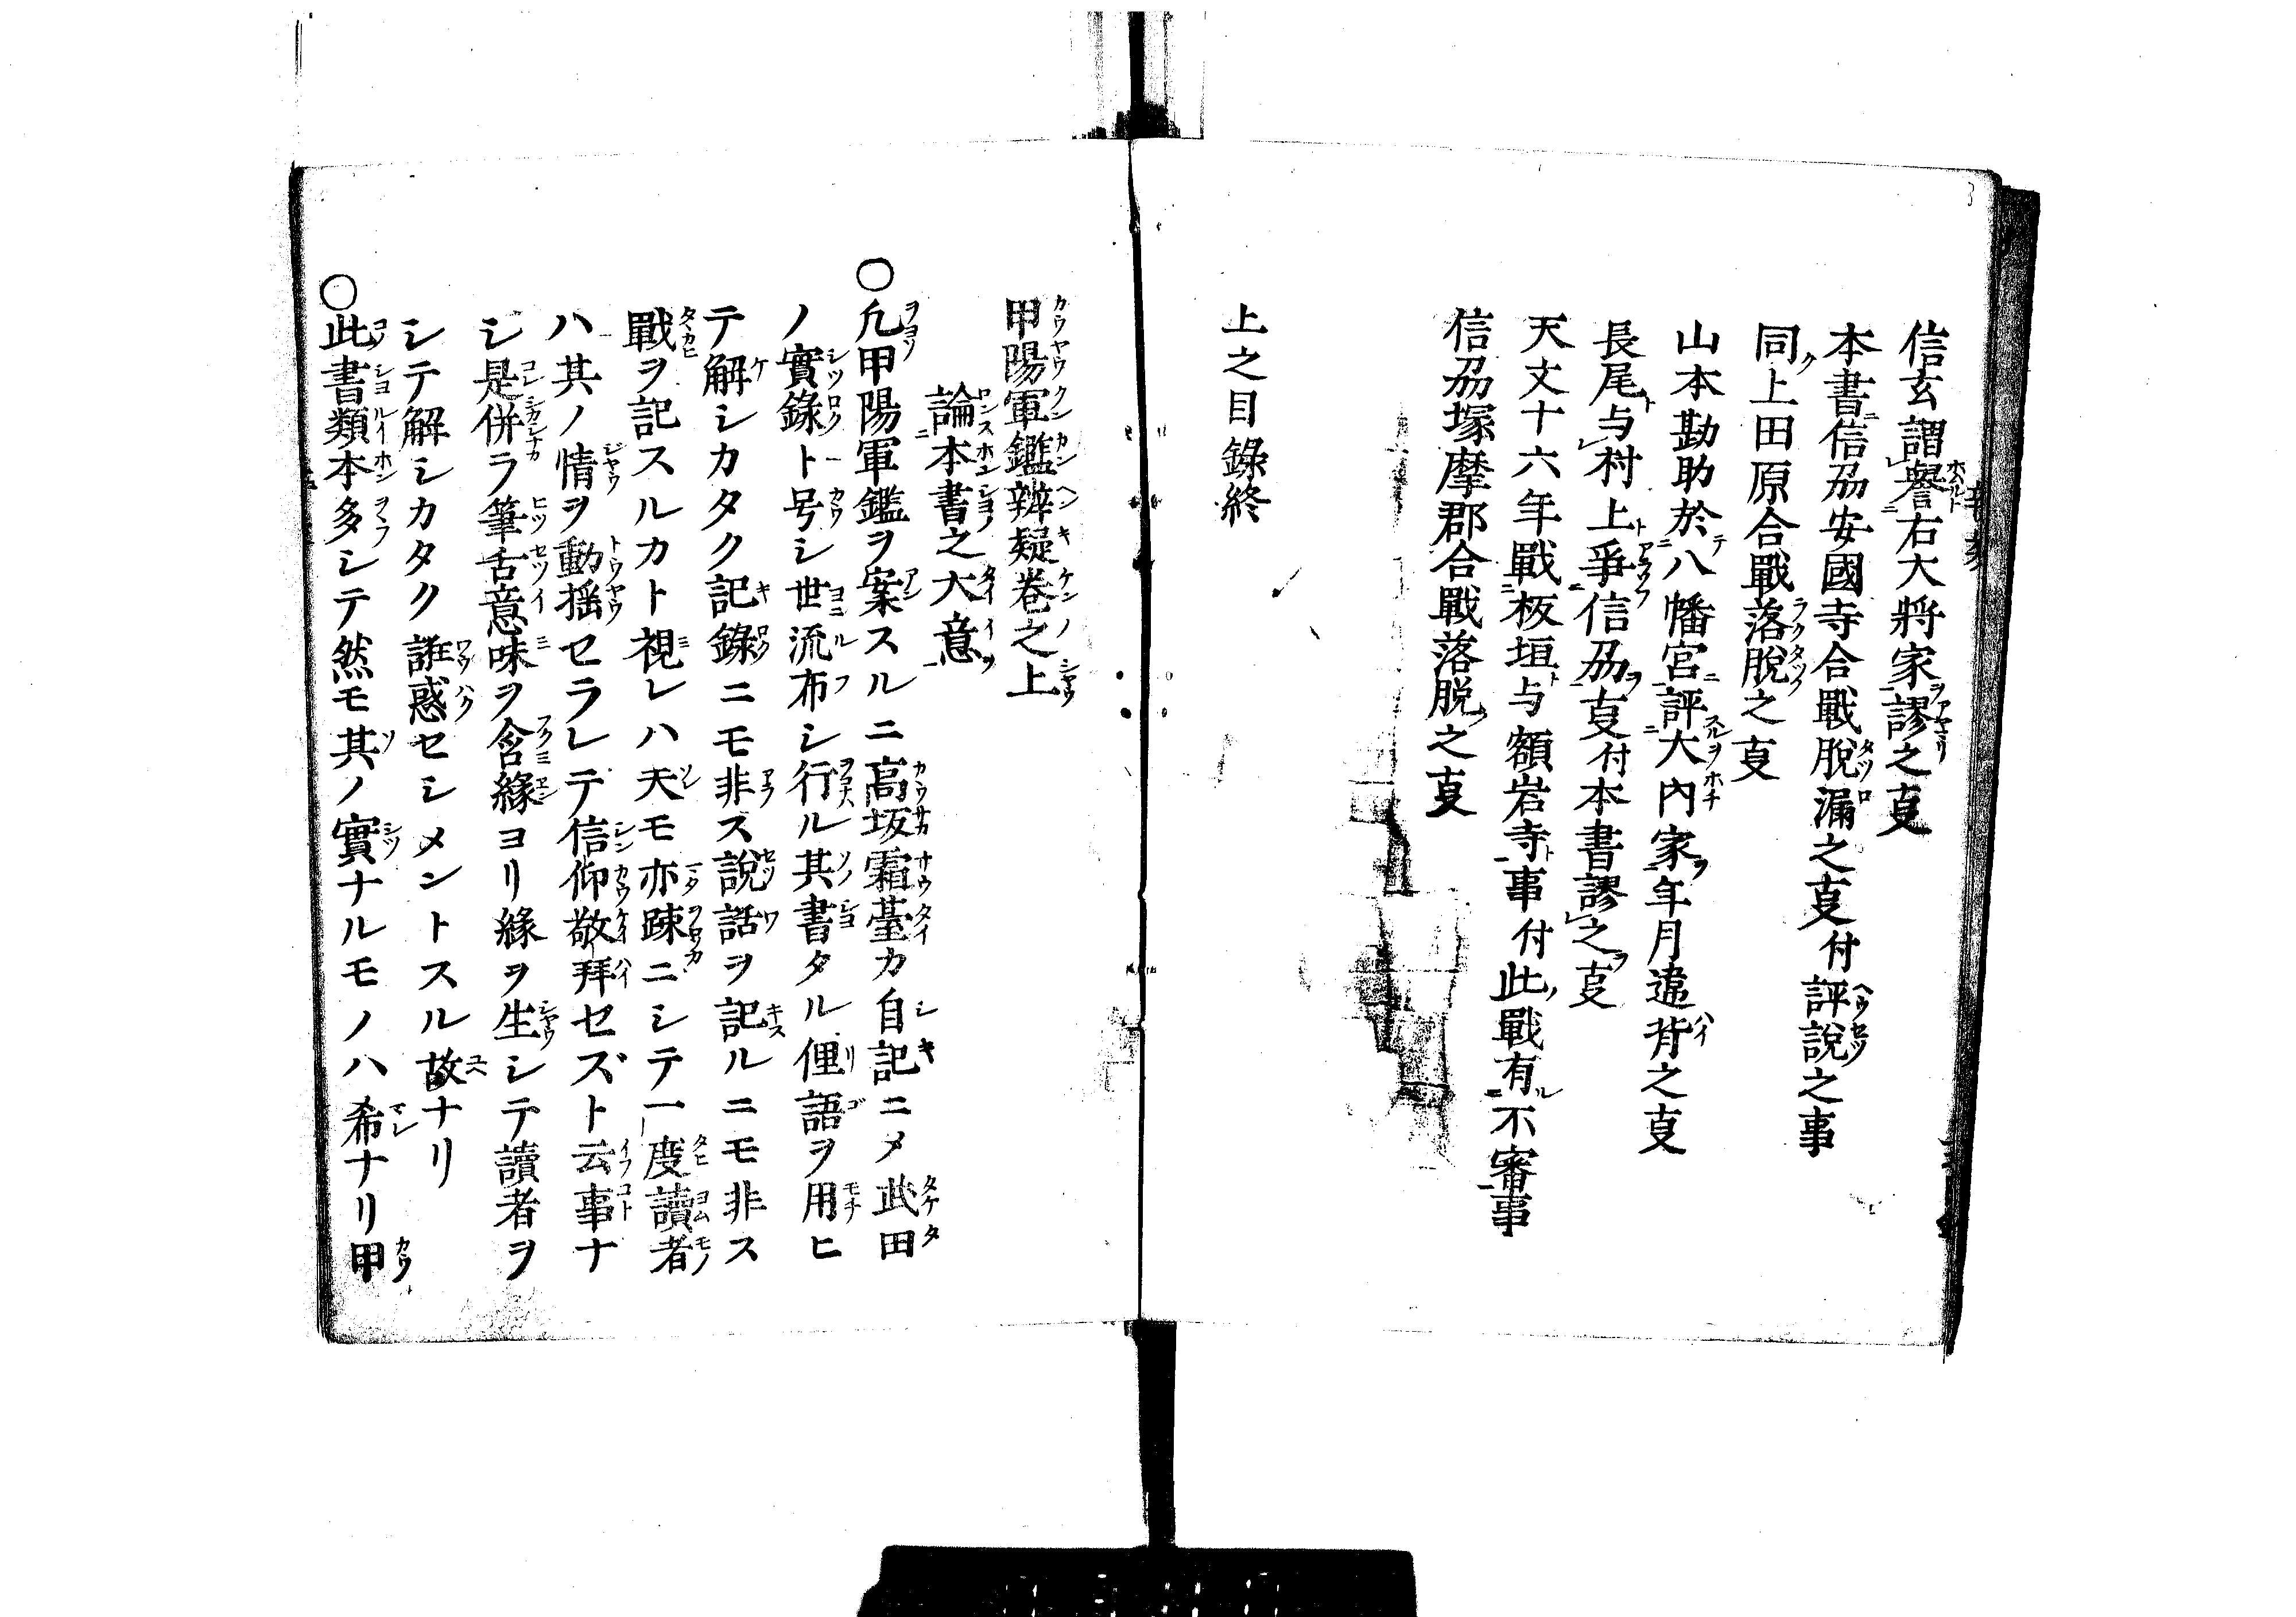 信玄謂譽右大將家謬之㕝
本書信刕安國寺合戰脫漏之㕝付評說之事
同上田原合戰落脫之㕝
山本勘助於八幡宮評大內家年月違背之㕝
長尾与村上爭信刕㕝付本書謬之㕝
天文十六年戰板垣与額岩寺事付此戰有不審事
信刕塚摩郡合戰落脫之㕝
上之目錄終
甲陽軍鑑辨疑卷之上
論本書之大意
〇凢甲陽軍鑑ヲ案スルニ高坂霜臺カ自記ニメ武田
ノ實錄ト号シ世流布シ行ル其書タル俚語ヲ用ヒ
テ解シカタク記錄ニモ非ス說話ヲ記ルニモ非ス
戰ヲ記スルカト視レハ夫モ亦踈ニシテ一度讀者
ハ其ノ情ヲ動揺セラレテ信仰敬拜セズト云事ナ
シ是併ラ筆舌意味ヲ含緣ヨリ緣ヲ生シテ讀者ヲ
シテ解シカタク誑惑セシメントスル故ナリ
〇此書類本多シテ然モ其ノ實ナルモノハ希ナリ甲